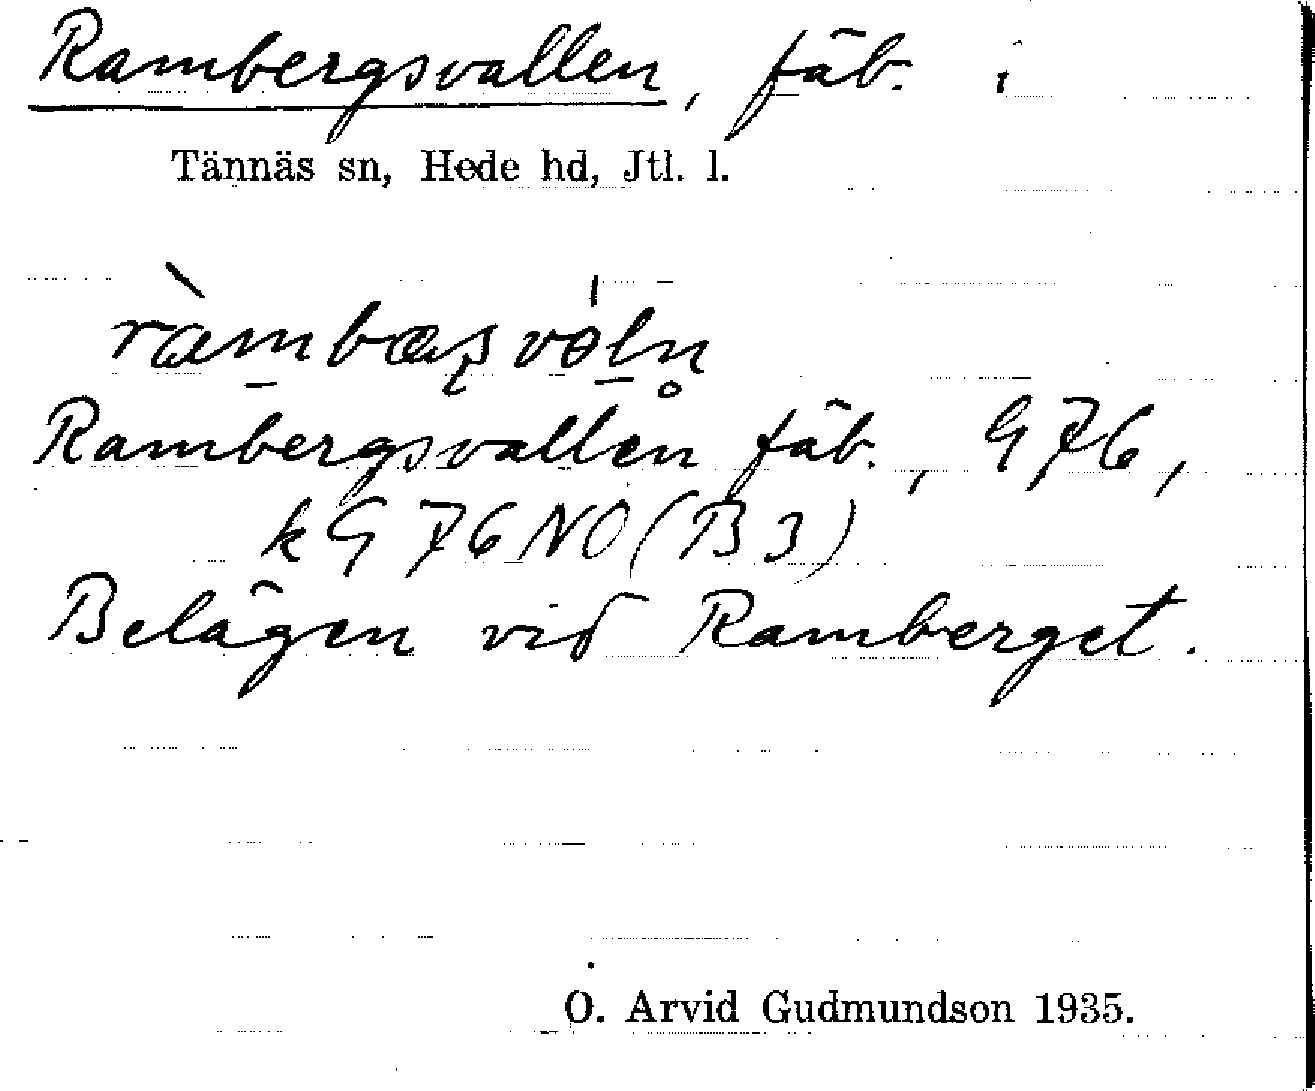 Rambergsvallen, fäb. i
Tännäs sn, Hede hd, Jtl. l.
Rambergsvallen fäb., G 76,
k G 76 NO (B 3)
Belägen vid Ramberget.
O. Arvid Gudmundson 1935.